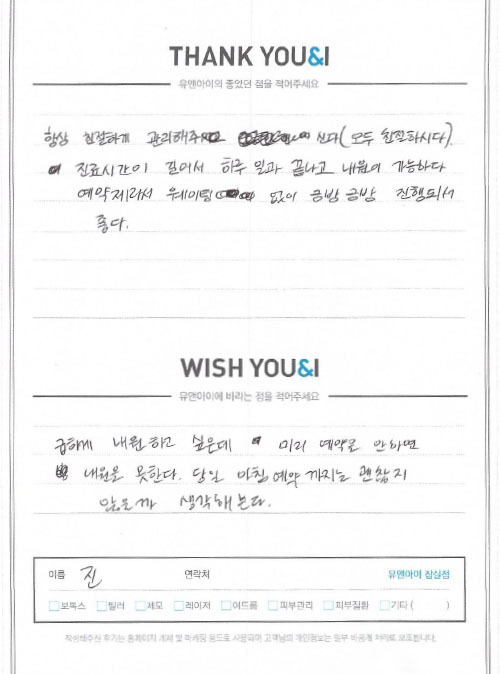 THANK YOU&I
유앤아이의 좋았던 점을 적어주세요
항상 친절하게 관리해주 신다(모두 친절하시다).
진료시간이 길어서 하루 일과 끝나고 내원이 가능하다
예약제라서 웨이팅 없이 금방 금방 진행되서
좋다.
WISH YOU&I
유앤아이에 바라는 점을 적어주세요
급하게 내원하고 싶은데 미리 예약을 안하면
내원을 못한다. 당일 아침예약 까지는 괜찮지
않을까 생각해본다.
이름 진 연락처 유앤아이 잠실점
보톡스 필러 제모 레이저 여드름 피부관리 피부질환 기타 ( )
작성해주신 후기는 홈페이지 게재 및 마케팅 용도로 사용되며 고객님의 개인정보는 일부 비공개 처리로 보호됩니다.